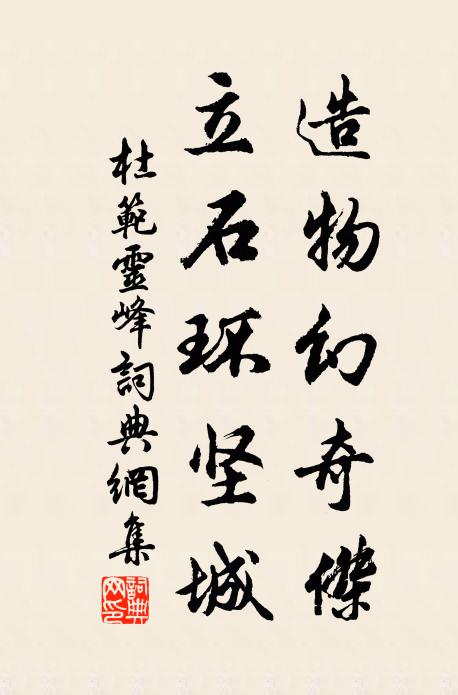 造物幻奇傑
立石环坚城
杜範靈峰詞典網集
詞典
网印